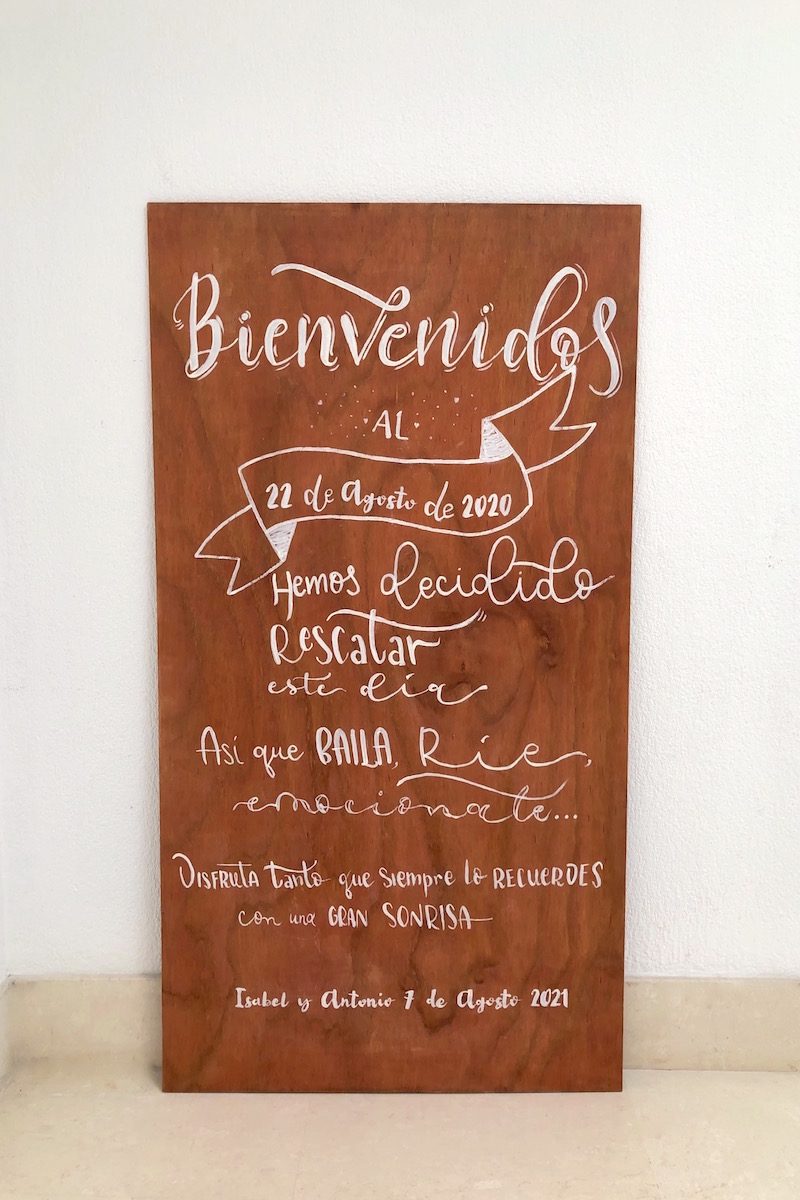 Bienvenidos
AL
22 de Agosto de 2020
Hemos decidido
Rescatar
este día
Así que BAILA, Ríe,
emocionate...
DISFRUTA tanto que siempre lo RECUERDES
con una GRAN SONRISA
Isabel y Antonio 7 de Agosto 2021